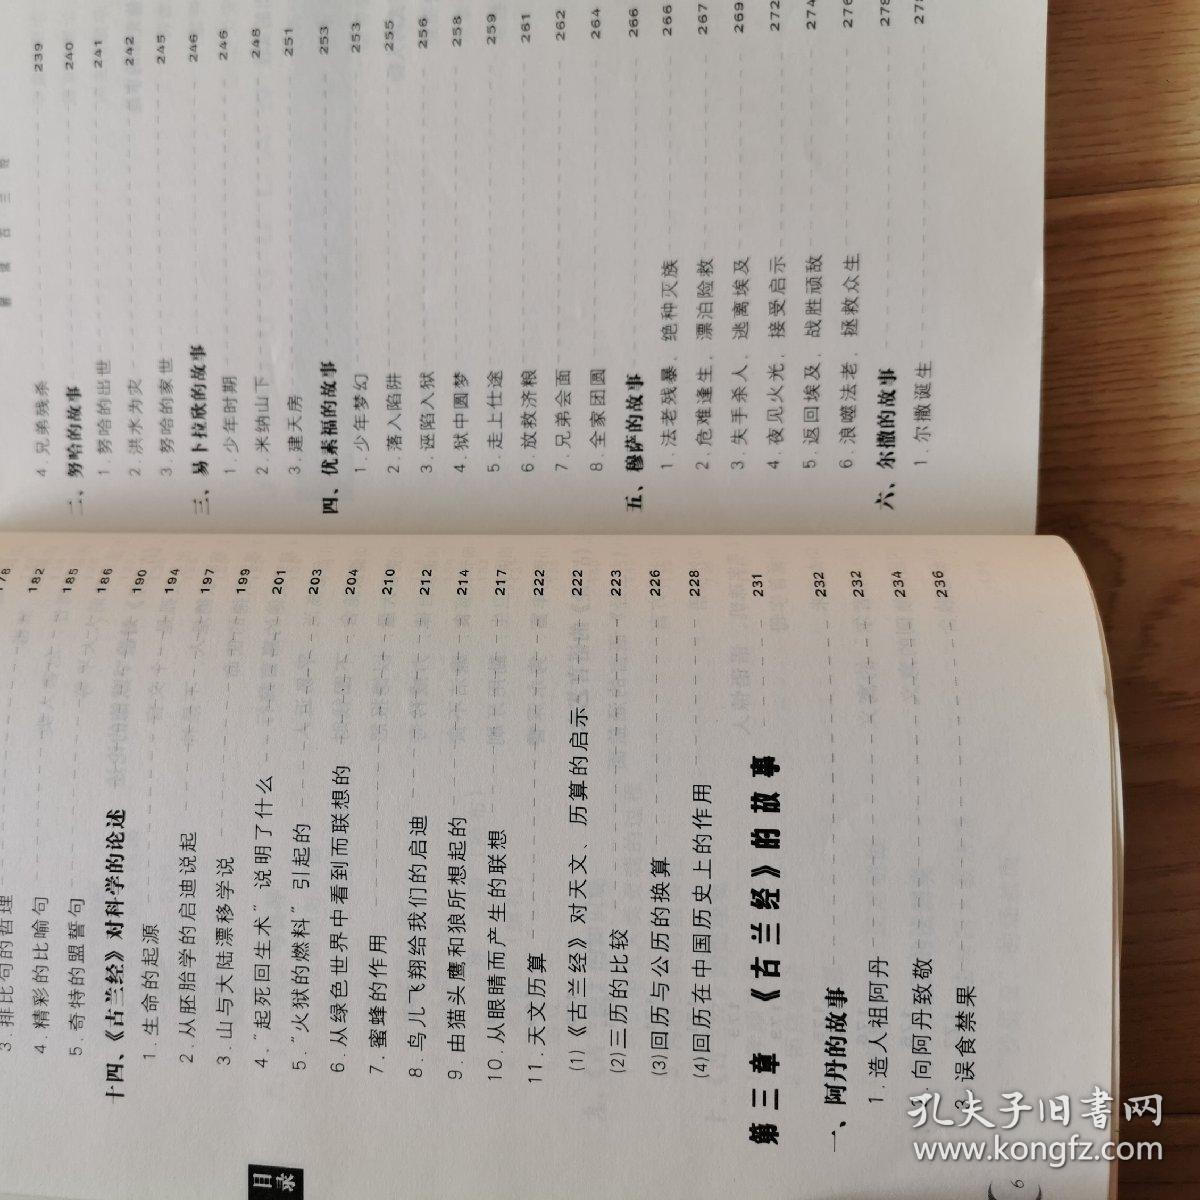 目录
3.排比句的哲理 178
4.精彩的比喻句 182
5.奇特的盟誓句 185
十四、《古兰经》对科学的论述 186
1.生命的起源 190
2.从胚胎学的启迪说起 194
3.山与大陆漂移学说 197
4.“起死回生术”说明了什么 199
5.“火狱的燃料”引起的 201
6.从绿色世界中看到而联想的 203
7.蜜蜂的作用 204
8.鸟儿飞翔给我们的启迪 210
9.由猫头鹰和狼所想起的 212
10.从眼睛而产生的联想 214
11.天文历算 217
(1)《古兰经》对天文、历算的启示 222
(2)三历的比较 222
(3)回历与公历的换算 223
(4)回历在中国历史上的作用 226
228
第三章 《古兰经》的故事 231
一、阿丹的故事 232
1.造人祖阿丹 232
2.向阿丹致敬 234
3.误食禁果 236
6
4.兄弟残杀 239
二、努哈的故事 240
1.努哈的出世 241
2.洪水为灾 242
3.努哈的家世 245
三、易卜拉欣的故事 246
1.少年时期 246
2.米纳山下 248
3.建天房 251
四、优素福的故事 253
1.少年梦幻 253
2.落入陷阱 255
3.诬陷入狱 256
4.狱中圆梦 258
5.走上仕途 259
6.放救济粮 261
7.兄弟会面 262
8.全家团圆 264
五、穆萨的故事 266
1.法老残暴，绝种灭族 266
2.危难逢生，漂泊险救 267
3.失手杀人，逃离埃及 269
4.夜见火光，接受启示 272
5.返回埃及，战胜顽敌 274
6.浪噬法老，拯救众生 276
六、尔撒的故事 278
1.尔撒诞生
孔夫子旧书网
www.kongfz.com